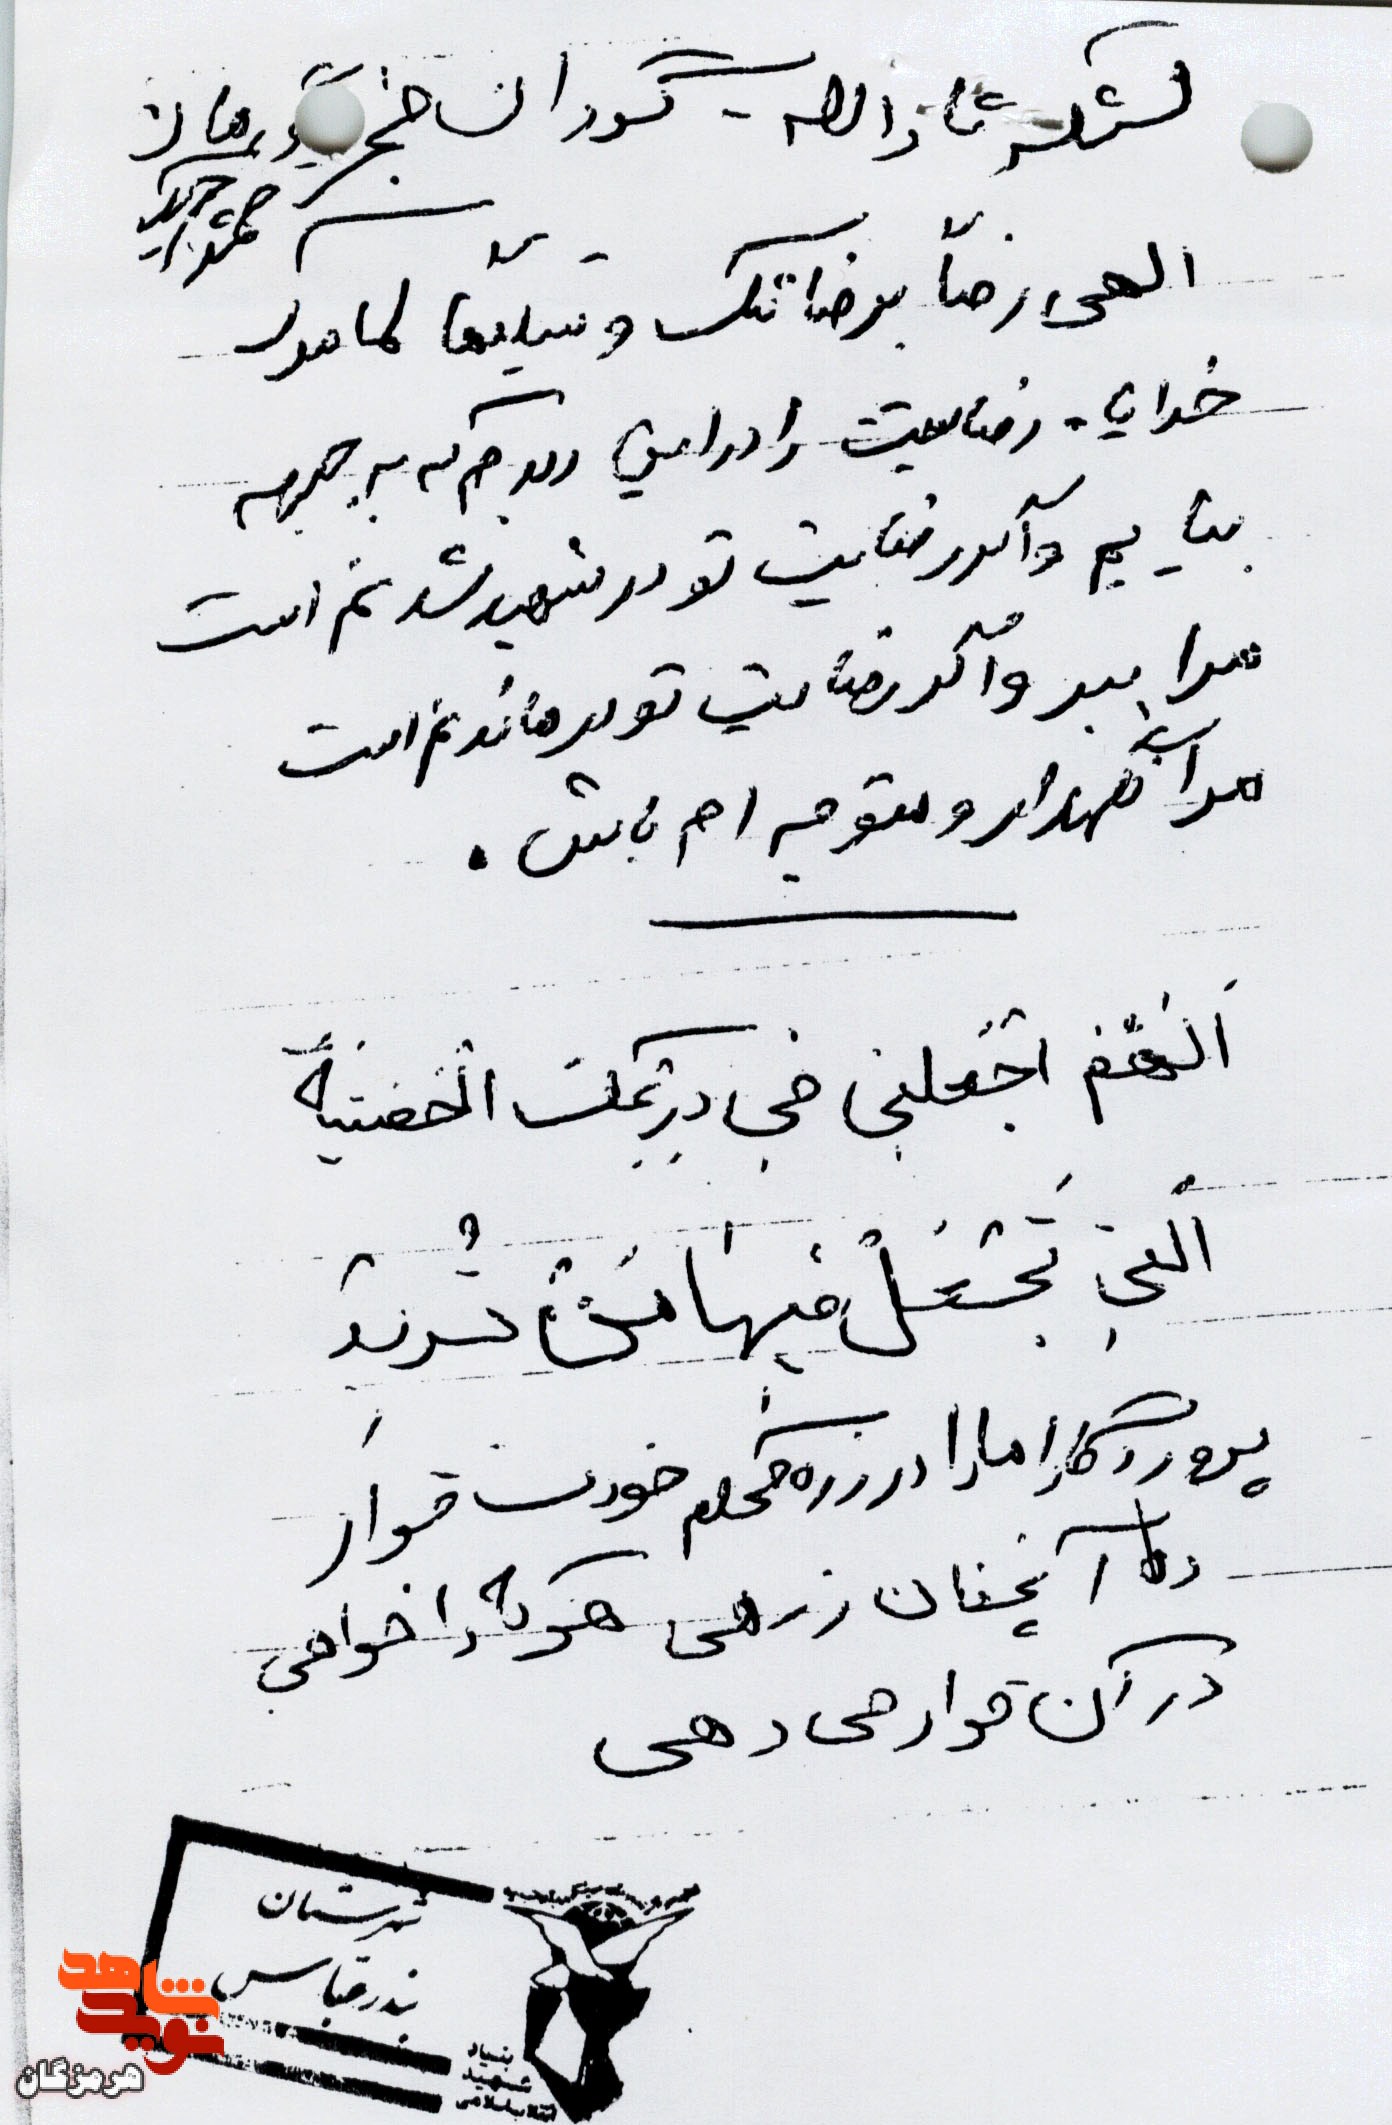 لشکر ثارالله - گردان
الهی رضاً برضائک و تسلیماً لامرک
خدایا - رضایت را در این دیدم که به جبهه
بیایم و اگر رضایت تو در شهید شدنم است
مرا ببر و اگر رضایت تو در ماندنم است
مرا نگهدار و متوجه ام باش .
اَللّهُمَّ اجْعَلنی فی دِرْعِکَ الْحَصینَةِ
اَلَّتی تَجْعَلُ فیها مَنْ تُریدُ
پروردگارا ما را در زره محکم خودت قرار
ده آنچنان زرهی هر که را خواهی
در آن قرار می دهی
شهرستان
بندرعباس
بنیاد
شهید
انقلاب اسلامی
نوید شاهد
هرمزگان